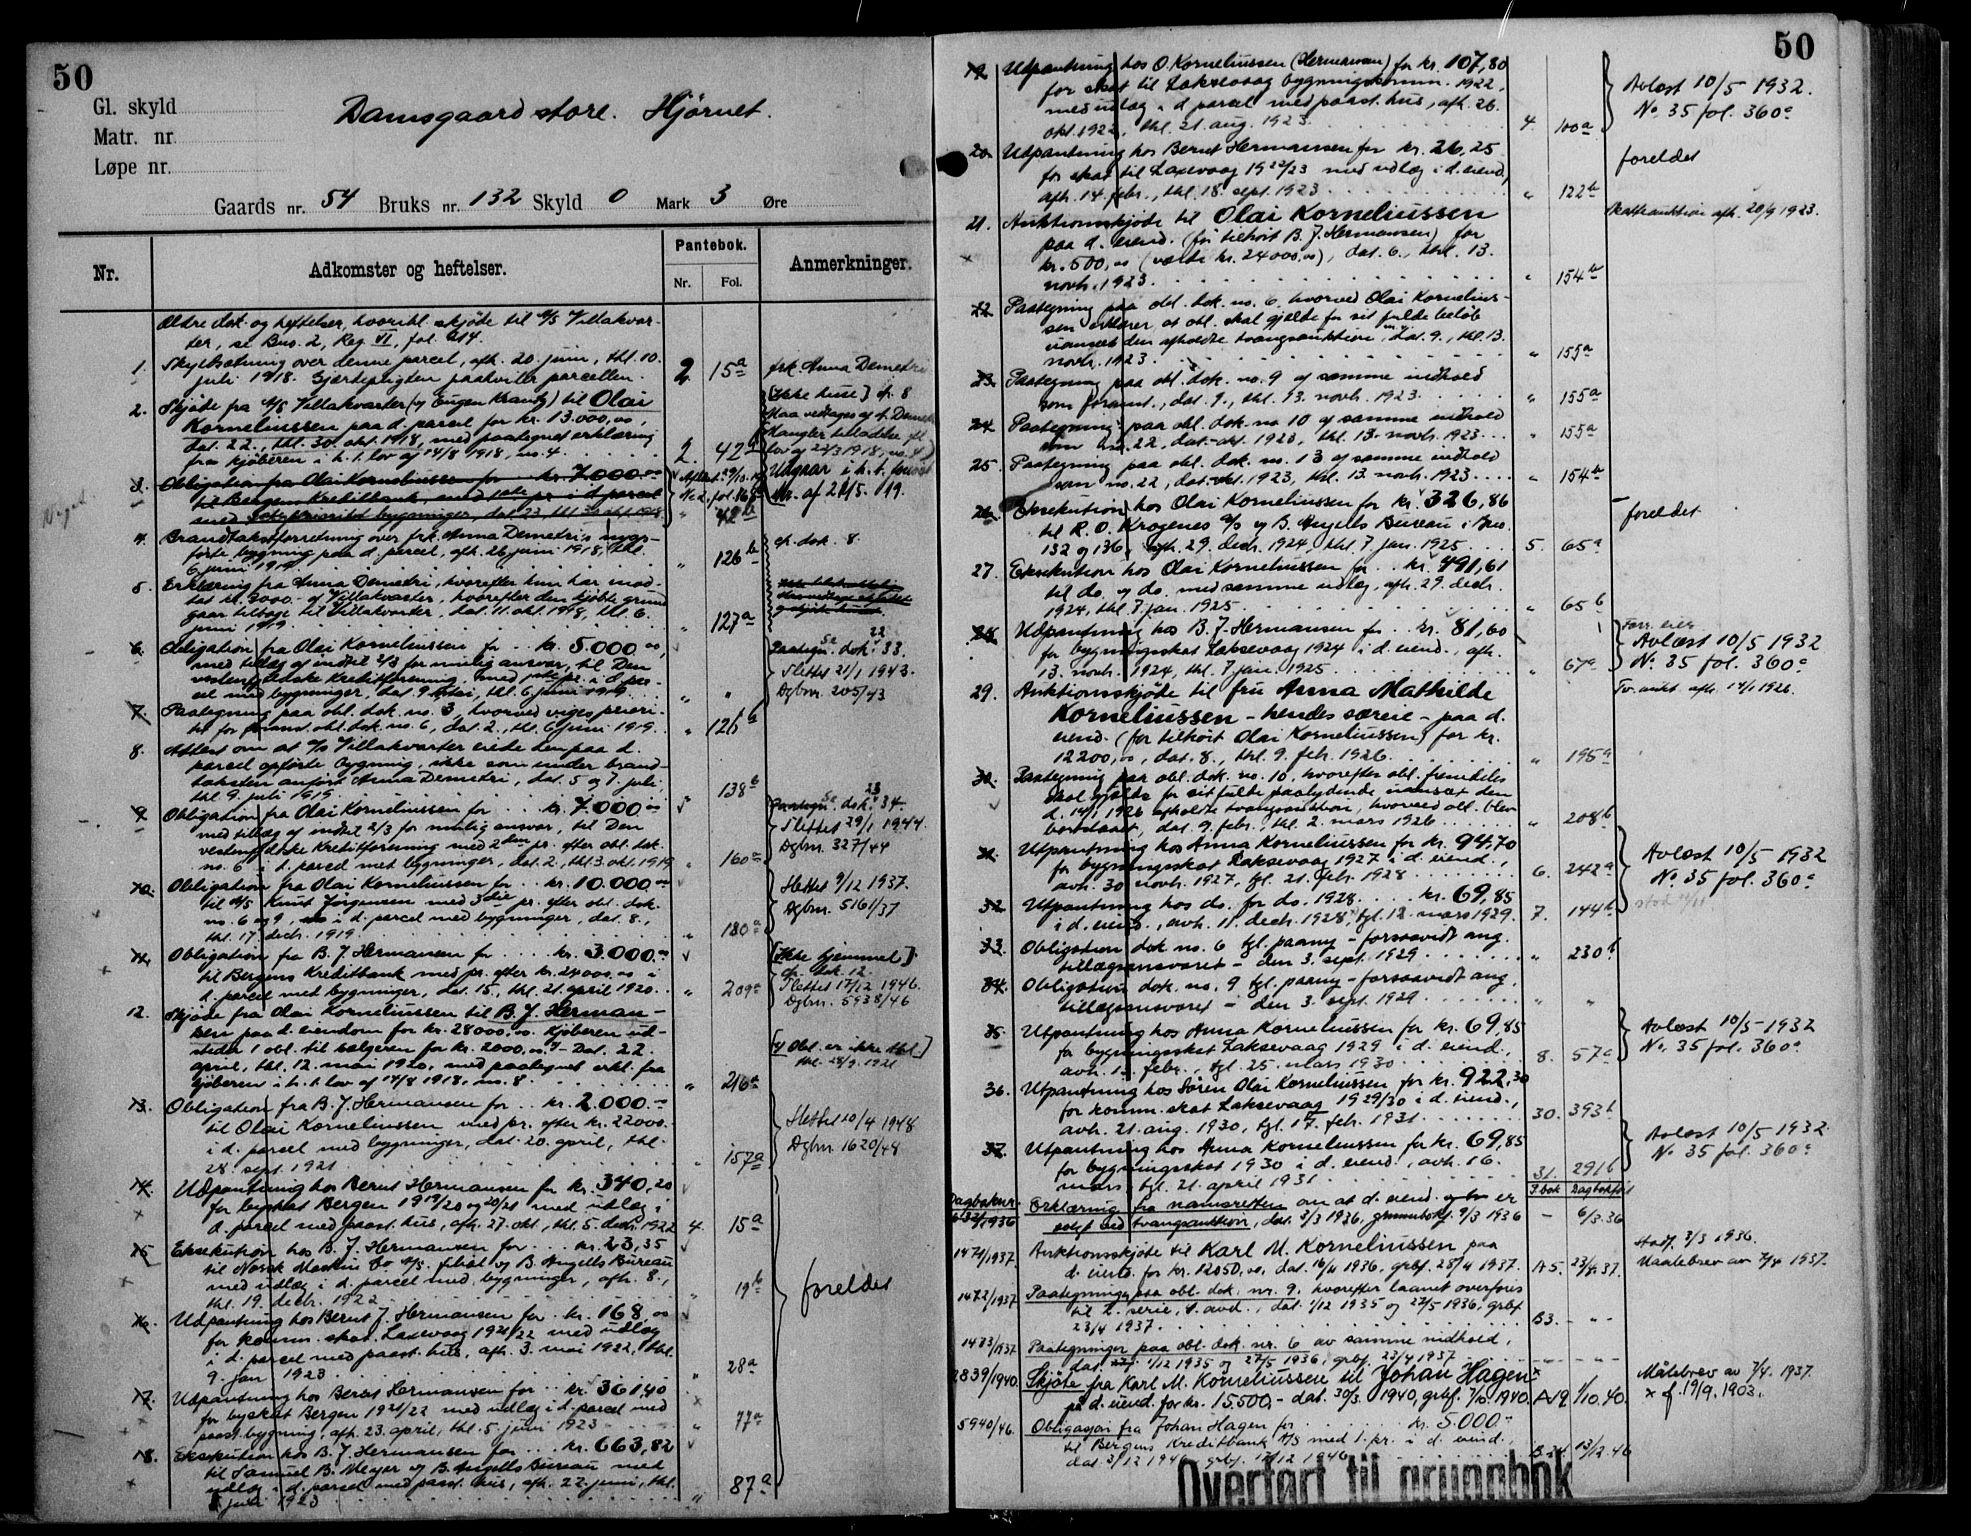 50
Gl. skyld
Matr. nr.
Løpe nr.
Damsgaard store. Hjørnet.
Gaards nr. 54 Bruks nr. 132 Skyld 0 Mark 3 Øre
Nr.
Adkomster og heftelser.
Pantebok.
Nr. Fol.
Anmerkninger.
Ældre dok. og heftelser, hvoribl. skjøde til A/S Villakvar-
ter, se Bus. 2, Reg. VI, fol. 214.
1. Skyldsætning over denne parcel, afh. 20. juni, thl. 10.
juli 1918. Gjærdepligten paahviler parcellen. 2 15a
frk. Anna Demetri
[Ikke huse] cf. 8
2. Skjøde fra A/S Villakvarter (v/ Eugen Krantz) til Olai
Korneliussen paa d. parcel for kr. 13.000,00,
dat. 22., thl. 30. okt. 1918, med paategnet erklæring
fra kjøberen i h. t. lov af 14/8 1918, no. 4. 2. 42b
3. Obligation fra Olai Korneliussen for kr. 7.000.00
til Bergens Kreditbank med 1ste pr. i d. parcel
med bygninger, dat. 23., thl. 30. okt. 1918 " 42b
4. Brandtakstforretning over frk. Anna Demetri's nyop-
førte bygning paa d. parcel, afh. 26. juni 1918, thl.
6. juni 1919 " 126b
cf. dok. 8.
5. Erklæring fra Anna Demetri, hvorefter hun har mod-
tat kr. 2000.- af Villakvarter, hvorefter den kjøbte grund
gaar tilbage til Villakvarter, dat. 11. okt. 1918, thl. 6.
juni 1919 " 127a
6. Obligation fra Olai Korneliussen for kr. 5.000.00,
med tillæg af indtil 2/3 for mulig ansvar, til Den
vestenfjeldske Kreditforening, med 1ste pr. i d. par-
cel med bygninger, dat. 9. mai, thl. 6. juni 1919 " "
Paategn. Se dok. 22. 33.
Slettet 21/1 1943.
Dgbnr. 205/43
7. Paategning paa obl. dok. no. 3, hvorved viges priori-
tet for foranst. obl. dok. no. 6, dat. 2., thl. 6. juni 1919. " 126b
8. Attest om at A/S Villakvarter eiede den paa d.
parcel opførte bygning, ikke som under brand-
taksten anført Anna Demetri, dat. 5 og 7. juli,
thl. 9. juli 1919 138b
9. Obligation fra Olai Korneliussen for kr. 7.000.00
med tillæg af indtil 2/3 for mulig ansvar, til Den
vestenfjeldske Kreditforening med 2den pr. efter obl. dok.
no. 6 i d. parcel med bygninger, dat. 2., thl. 3. okt. 1919 " 160a
Paategn. Se dok. 23. 34.
Slettet 29/1 1944.
Dgbnr. 327/44
10. Obligation fra Olai Korneliussen for kr. 10.000.00
til A/S Knut Jørgensen med 3die pr. efter obl. dok.
no. 6 og 9, i d. parcel med bygninger, dat. 8.,
thl. 17. decb. 1919 " 180a
Slettet 9/12 1937.
Dgbnr. 5161/37
11. Obligation fra B. J. Hermansen for kr. 3.000.00
til Bergens Kreditbank med pr. efter kr. 24000,00 i
d. parcel med bygninger, dat. 15., thl. 21. april 1920. " 209a
[Ikke hjemmel]
cf. dok. 12.
Slettet 17/12 1946.
Dgbnr. 5938/46
12. Skjøde fra Olai Korneliussen til B. J. Herman-
sen paa d. eiendom for kr. 28000,00. Kjøberen ud-
steder 1 obl. til sælgeren for kr. 2000,00. Dat. 22.
april, thl. 12. mai 1920, med paategnet erkl. fra
kjøberen i h. t. lov af 14/8 1918, no. 8. " 216a
[Obl. er ikke thl.]
thl. 28/9 1921
13. Obligation fra B. J. Hermansen for kr. 2.000.-
til Olai Korneliussen med pr. efter kr. 22000.-
i d. parcel med bygninger, dat. 20. april, thl.
28. sept. 1921 " 157a
Slettet 10/4 1948
Dgbnr. 1620/48
14. Udpantning hos Bernt Hermansen for kr. 340,20
for byskat Bergen 1919/20 og 20/21 med udlæg i
d. parcel med paast. hus, afh. 27. okt., thl. 5. decb. 1922 4. 15a
15. Eksekution hos B. J. Hermansen for kr. 23,35
til Norsk Maskin Co A/S, filial v/ B. Angells Bureau
med udlæg i d. parcel med bygninger, afh. 8.,
thl. 19. decbr. 1922 " 19b
foreldet
16. Udpantning hos Bernt J. Hermansen for kr. 168,00
for komm. skat Laksevaag 1921/22 med udlæg
i d. parcel med paast. hus, afh. 3. mai 1922, thl.
9. jan 1923 " 28a
17. Udpantning hos Bernt Hermansen for kr. 361,40
for byskat Bergen 1921/22 med udlæg i d. parcel med
paast. bygning, afh. 23. april, thl. 5. juni 1923 " 77a
18. Eksekution hos B. J. Hermansen for kr. 663,82
til Samuel B. Meyer v/ B. Angells Bureau med
udlæg i d. parcel med paast. hus, afh. 22. juni, thl.
juli 1923 " 87a
50
19. Udpantning hos O. Korneliussen (Hermansen) for kr. 107,80
for skat til Laksevaag bygningskomm. 1922,
med udlæg i d. parcel med paast. hus, afh. 26.
okt. 1922, thl. 21. aug. 1923 4. 100a
Avlæst 10/5 1932.
No. 35 fol. 360a
20. Udpantning hos Bernt Hermansen for kr. 26,25
for skat til Laxevaag 1922/23 med udlæg i d. eiend.,
afh. 14. febr., thl. 18. sept. 1923 " 122b
foreldet
Skatteauktion afh. 20/9 1923.
21. Auktionsskjøde til Olai Korneliussen
paa d. eiend. (før tilhørt B. J. Hermansen) for
kr. 500,00 (værdi kr. 24000,00), dat. 6., thl. 13.
novb. 1923 " 154b
22. Paategning paa obl. dok. no. 6, hvorved Olai Kornelius-
sen erklærer, at obl. skal gjælde for sit fulde beløb
uanset den afholdte tvangsauktion, dat. 9., thl. 13.
novb. 1923 " 155a
23. Paategning paa obl. dok. no. 9 af samme indhold
som foranst., dat. 9., thl. 13. novb. 1923 " 155a
24. Paategning paa obl. dok. no 10 af samme indhold
som no. 22, dat. okt. 1923, thl. 13. novb. 1923 " 155a
25. Paategning paa obl. dok. no. 13 af samme indhold
som no. 22, dat. okt. 1923, thl. 13. novb. 1923 " 154b
26. Eksekution hos Olai Korneliussen for kr. 326,86
til R. O. Krogenes A/S v/ B. Angells Bureau i Bno.
132 og 136, afh. 29. decb. 1924, thl. 7. jan. 1925 5. 65a
foreldet
27. Eksekution hos Olai Korneliussen for kr. 491,61
til do. v/ do. med samme udlæg, afh. 29. decb.
1924, thl. 7. jan. 1925 " 65b
28. Udpantning hos B. J. Hermansen for kr. 81,60
for bygningsskat Laksevaag 1924 i d. eiend., afh.
13. novb. 1924, thl. 7. jan. 1925 " 67a
Forr. eier
Avlæst 10/5 1932
No. 35 fol. 360a
Tv. aukt. afh. 14/1 1926.
29. Auktionsskjøde til fru Anna Mathilde
Korneliussen - hendes særeie - paa d.
eiend. (før tilhørt Olai Korneliussen) for kr.
12200,00, dat. 8., thl. 9. feb. 1926 " 195a
30. Paategning paa obl. dok. no. 10, hvorefter obl. fremdeles
skal gjælde for sit fulde paalydende uanset den
d. 14/1 1926 afholdte tvangsauktion, hvorved obl. blev
bortslaaet, dat. 9. febr., thl. 2. mars 1926 " 208b
31. Utpantning hos Anna Korneliussen for kr. 94,70
for bygningsskat Laksevaag 1927 i d. eiend.,
avh. 30. novb. 1927, tgl. 21. feb. 1928 6. 242a
Avlæst 10/5 1932
No. 35 fol. 360a
32. Utpantning hos do. for do. 1928 kr. 69,85
i d. eiend., avh. 11. decb. 1928, tgl. 12. mars 1929. 7. 144b
33. Obligation dok. no. 6 tgl. paany - forsaavidt ang.
tillægsansvaret - den 3. sept. 1929 " 230b
34. Obligation dok. no. 9 tgl. paany - forsaavidt ang.
tillægsansvaret - den 3. sept. 1929 " "
35. Utpantning hos Anna Korneliussen for kr. 69,85
for bygningsskat Laksevaag 1929 i d. eiend.,
avh. febr., tgl. 25. mars 1930 8. 57a
Avlæst 10/5-1932
No. 35 fol. 360a
36. Utpantning hos Søren Olai Korneliussen for kr. 922,30
for komm. skat Laksevaag 1929/30 i d. eiend.,
avh. 21. aug. 1930, tgl. 17. feb. 1931 30. 393b
37. Utpantning hos Anna Korneliussen for kr. 69,85
for bygningsskat 1930 i d. eiend., avh. 16.
mars, tgl. 21. april 1931 31. 291b
Avlæst 10/5 1932
No. 35 fol. 360a
Dagboknr. P.bok Dagbokført
Erklæring fra namsretten om at d. eiend. er
solgt ved tvangsauktion, dat. 3/3 1936, grunnbokf. 9/3 1936 - 6/3.36
Stadf. 3/3 1936.
1471/1937 Auktionsskjøte til Karl M. Korneliussen paa
d. eiend. for kr. 12050,00, dat. 16/11 1936, grbf. 28/4 1937. A5. 23/4.37.
Maalebrev av 7/4 1937.
1472/1937 Paategninger paa obl. dok. nr. 9, hvorefter laanet overføres
til 2. serie, 1. avd., dat. 1/12 1935 og 27/5 1936, grbf.
23/4 1937. B3. - " -
1473/1937 Paategninger paa obl. dok. nr. 6 av samme indhold,
dat. 1/12 1935 og 27/5 1936, grbf. 23/4 1937 - " - - " -
2839/1940. Skjøte fra Karl M. Korneliussen til Johan Hagen x
på d. eiend. for kr. 15.500,- dat. 30/3 1940, grbf. 7/10 1940. A19. 1/10.40.
Målebrev av 7/4. 1937.
x f. 19/9. 1903.
5940/46. Obligasjon fra Johan Hagen for kr. 5.000.-
til Bergens Kreditbank A/S med 1. pr. i d. eiend.,
dat. 3/12 1946, grbf. 17/12 1946 B24 13/12.46
Overført til grunnbok